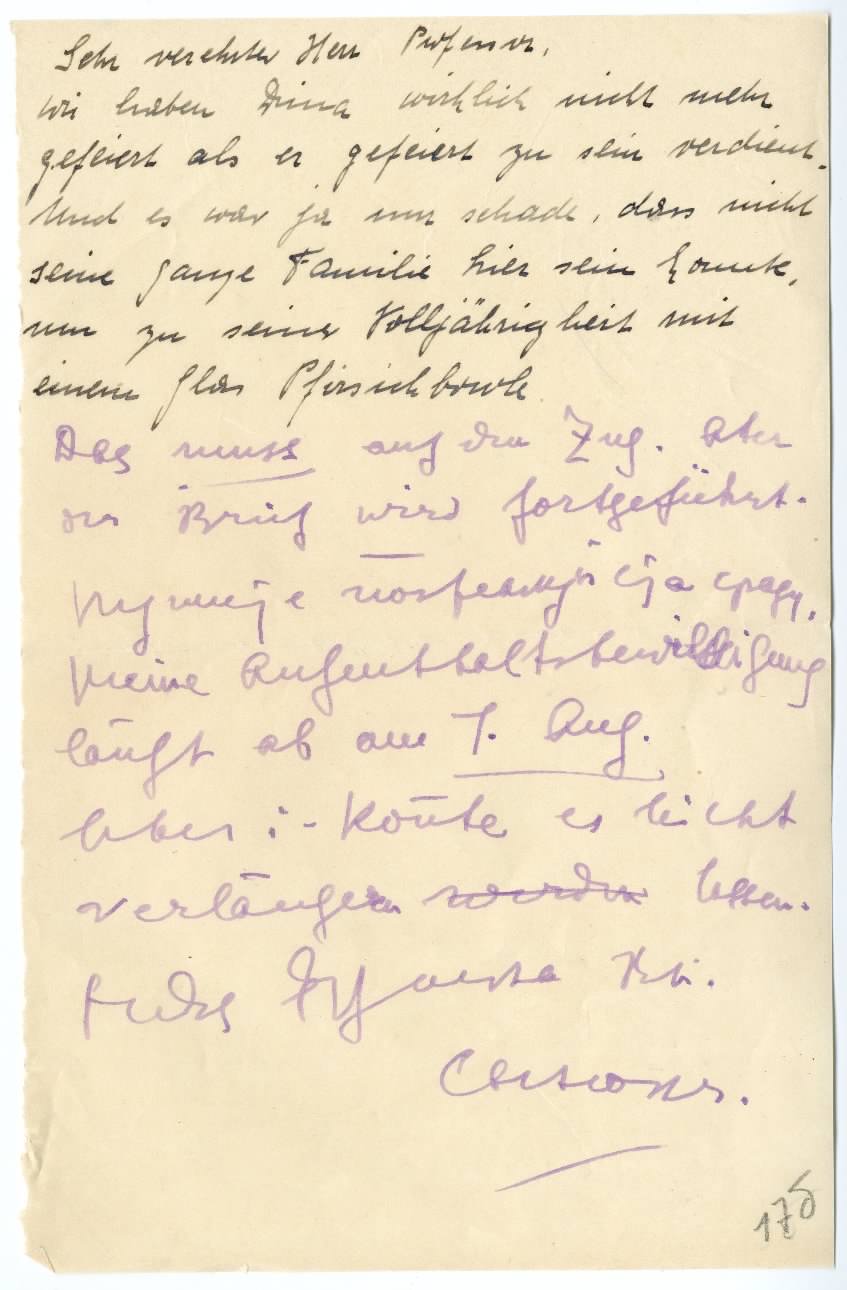 Sehr verehrter Herr Professor,
wir haben Dima wirklich nicht mehr
gefeiert als er gefeiert zu sein verdient.
Und es war ja nur schade, dass nicht
seine ganze Familie hier sein konnte,
um zu seiner Volljährigkeit mit
einem Glas Pfirsichbowle
Das muss auf den Zug. Aber
der Brief wird fortgeführt.
Meine Aufenthaltsbewilligung
läuft ab am 7. Aug.
aber :- Könte es leicht
verlängern werden lassen.
175